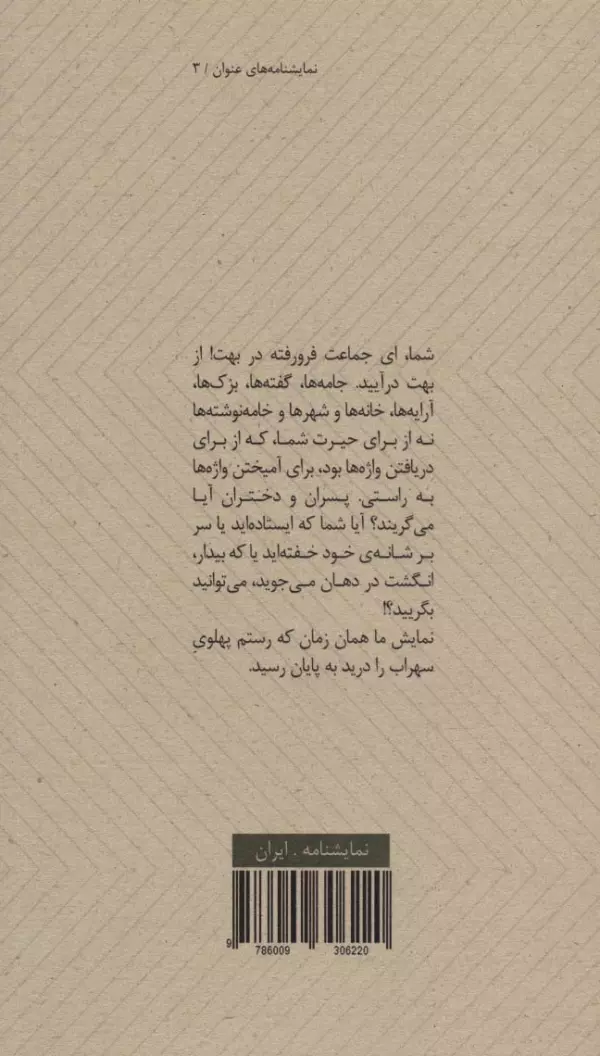 نمایشنامه‌های عنوان / ۳
شما، ای جماعت فرورفته در بهت! از
بهت درآیید. جامه‌ها، گفته‌ها، بزک‌ها،
آرایه‌ها، خانه‌ها و شهرها و خامه‌نوشته‌ها
نه از برای حیرت شما، که از برای
دریافتن واژه‌ها بود، برای آمیختن واژه‌ها
به راستی. پسران و دختران آیا
می‌گریند؟ آیا شما که ایستاده‌اید یا سر
بر شانه‌ی خود خفته‌اید یا که بیدار،
انگشت در دهان می‌جوید، می‌توانید
بگریید؟!
نمایش ما همان زمان که رستم پهلویِ
سهراب را درید به پایان رسید.
نمایشنامه . ایران
9 786009 306220